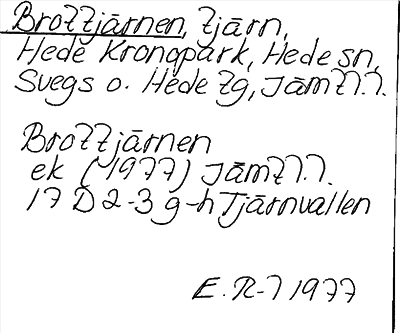 Brottjärnen, tjärn,
Hede Kronopark, Hede sn,
Svegs o. Hede tg, Jämtl.l.
Brottjärnen
ek (1977) Jämtl.l.
17 D 2-3 g-h Tjärnvallen
E.R-l 1977